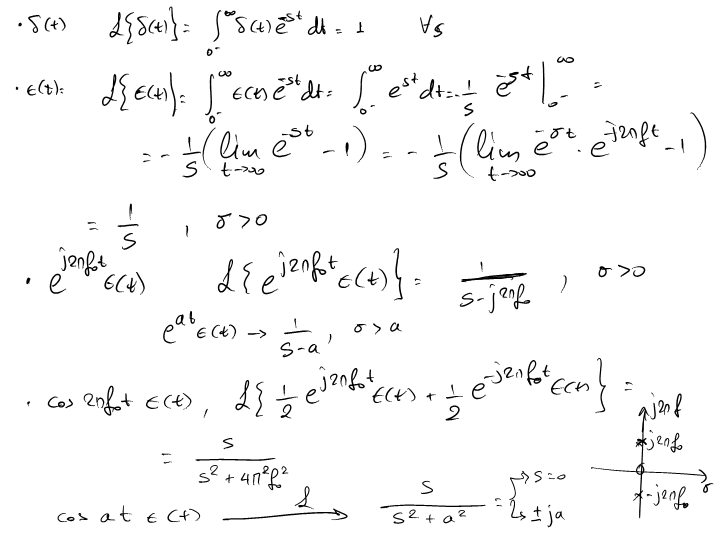 · δ(t) ℒ{δ(t)} = ∫_{0^-}^{∞} δ(t) e^{-st} dt = 1 ∀s
· ϵ(t): ℒ{ϵ(t)} = ∫_{0^-}^{∞} ϵ(t) e^{-st} dt = ∫_{0^-}^{∞} e^{st} dt = -1/s e^{-st} |_{0^-}^{∞} =
= - 1/s ( lim_{t→∞} e^{-st} - 1 ) = - 1/s ( lim_{t→∞} e^{-σt} · e^{-j2πft} - 1 )
= 1/s , σ>0
· e^{j2πf₀t} ϵ(t) ℒ{e^{j2πf₀t} ϵ(t)} = 1/(s-j2πf₀) , σ>0
e^{at} ϵ(t) → 1/(s-a) , σ>a
· cos 2πf₀t ϵ(t) , ℒ{ 1/2 e^{j2πf₀t} ϵ(t) + 1/2 e^{-j2πf₀t} ϵ(t) } =
= s/(s² + 4π²f₀²)
j2πf
j2πf₀
-j2πf₀
σ
cos at ϵ(t) ℒ→ s/(s² + a²) = → s=0
→ ± ja